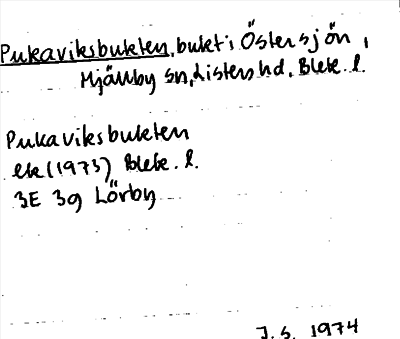 Pukaviksbukten, bukt i Östersjön,
Mjällby sn, Listers hd, Blek. l.
Pukaviksbukten
ek (1973) Blek. l.
3E 3g Lörby
J. S. 1974